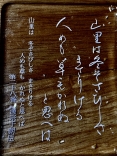 山里は冬ぞさびしさ
まさりける
人めも草もかれぬ
と思へば
山里は　冬ぞさびしさ　まさりける
人めも草も　かれぬとおもへば